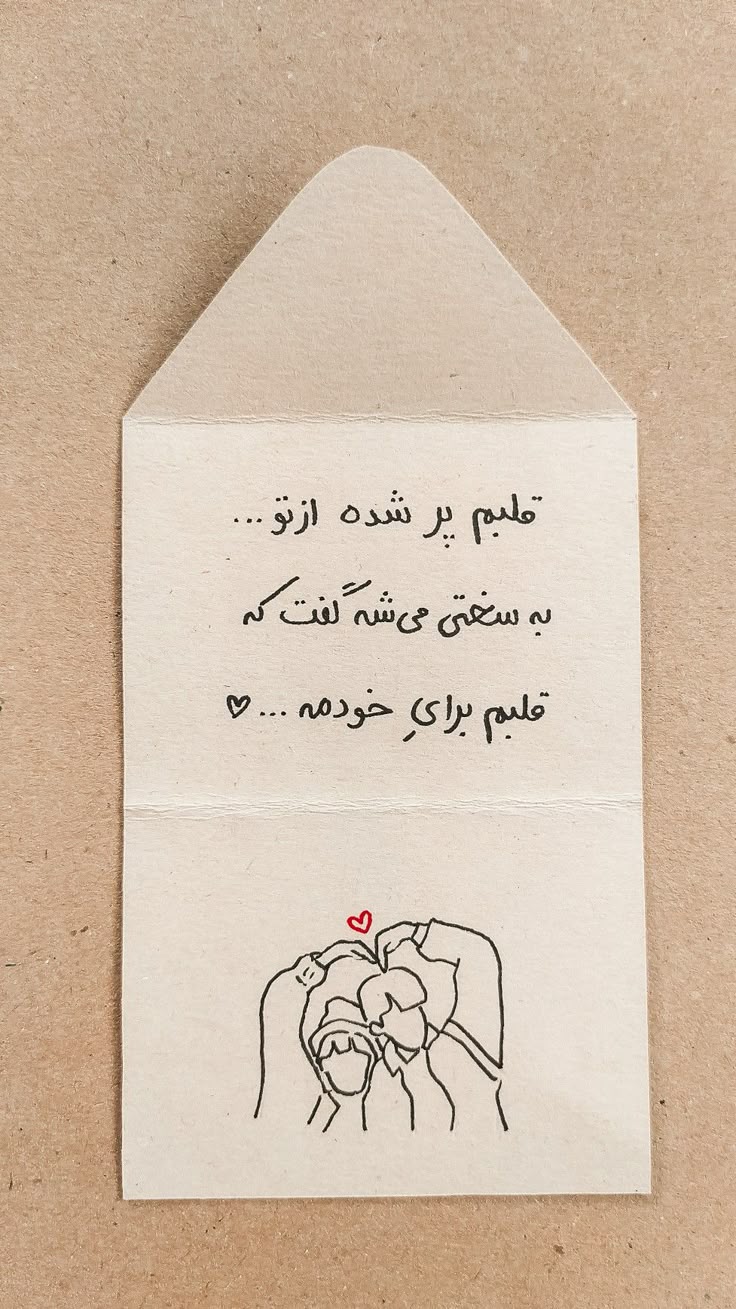 قلبم پر شده از تو ...
به سختی می‌شه گفت که
قلبم برایِ خودمه ... ♡